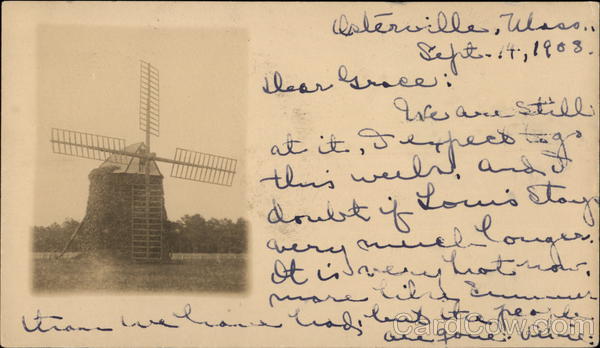 Osterville, Mass.,
Sept. 14, 1908.
Dear Grace:
We are still
at it, I expect to go
this week, and I
doubt if Louis stays
very much longer.
It is very hot now,
more like Summer
than we have had; but it a people
are gone.
CardCow.com